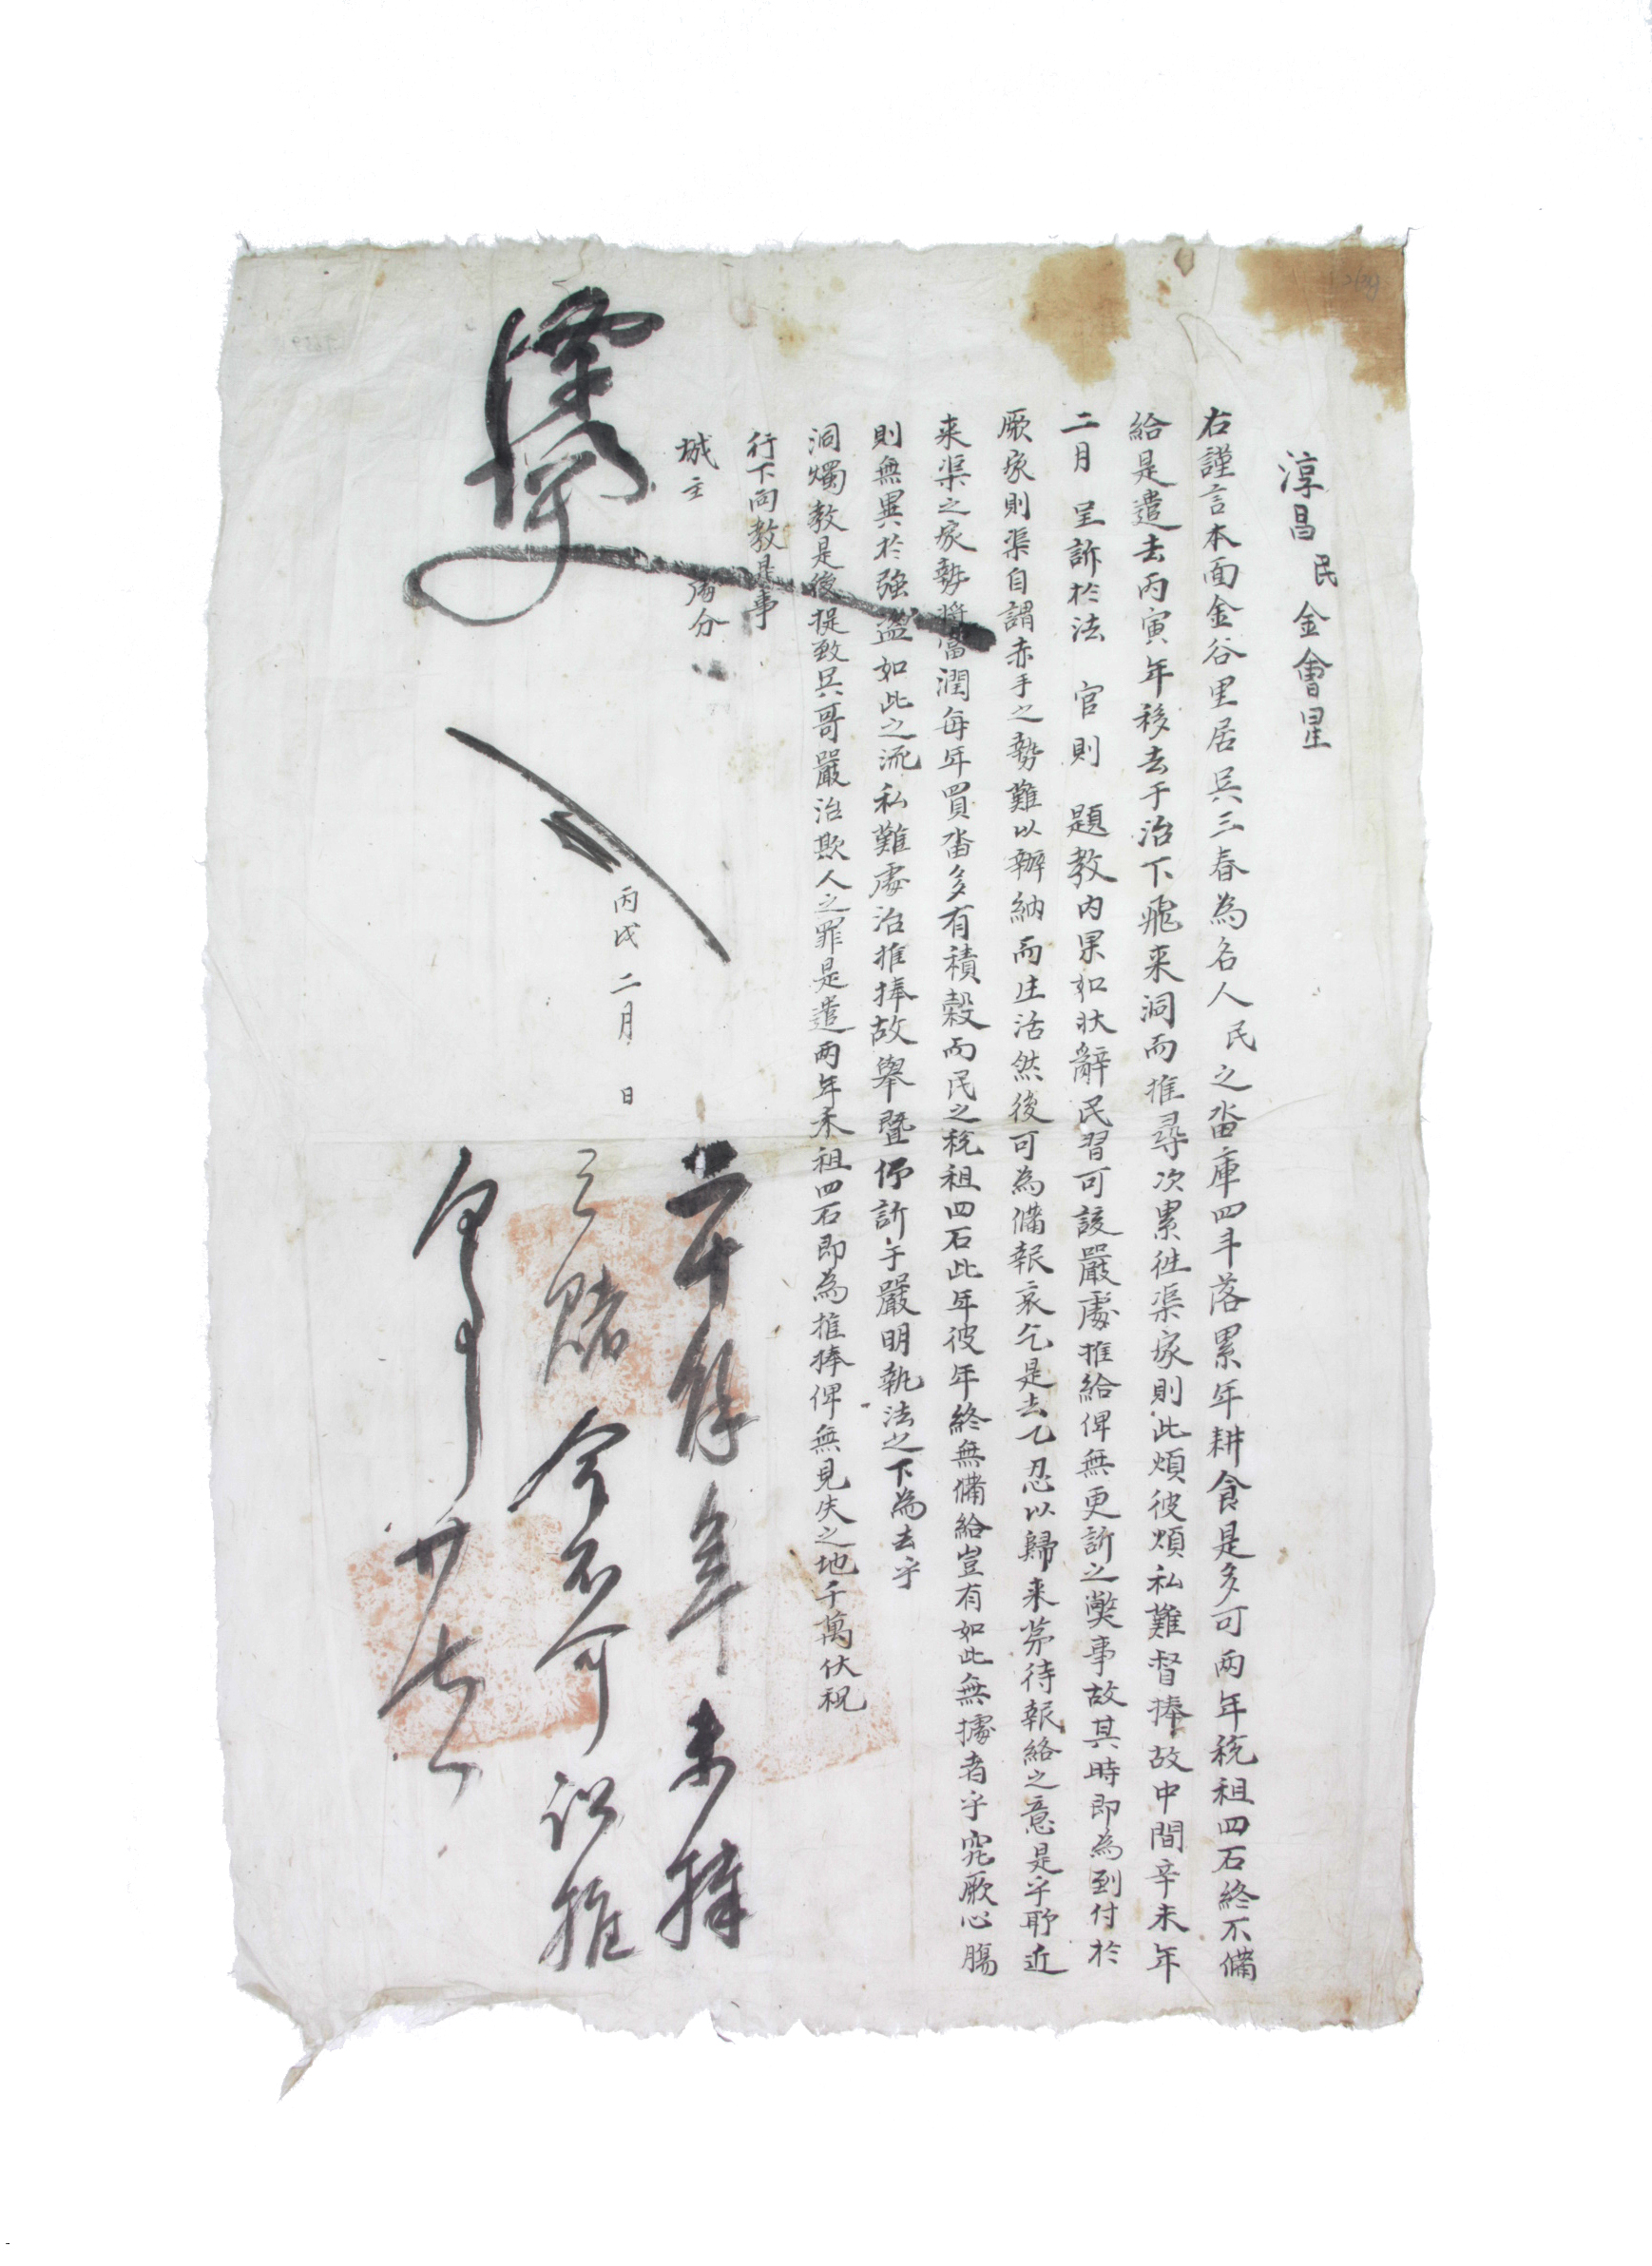 淳昌 民 金會星
右謹言本面金谷里居吳三春為名人民之畓庫四斗落累年耕食是多可兩年稅租四石終不備
給是遣去丙寅年移去于治下飛来洞而推尋次累徃渠家則此煩彼煩私難督捧故中間辛未年
二月 呈訴於法 官則 題教內果如狀辭民習可該嚴處推給俾無更訴之獘事故其時即為到付於
厥家則渠自謂赤手之勢難以辦納而庄活然後可為備報哀乞是去乙忍以歸来苐待報給之意是乎所近
来渠之家勢將富潤每年買畓多有積穀而民之稅租四石此年彼年終無備給豈有如此無據者乎究厥心腸
則無異於強盜如此之流私難處治推捧故舉曁仰訴于嚴明執法之下為去乎
洞燭教是後捉致吳哥嚴治欺人之罪是遣兩年禾租四石即為推捧俾無見失之地千萬伏祝
行下向教是事
城主 處分
丙戌 二月 日
二十餘年未捧
之賭今不可訟推
向事 廿七